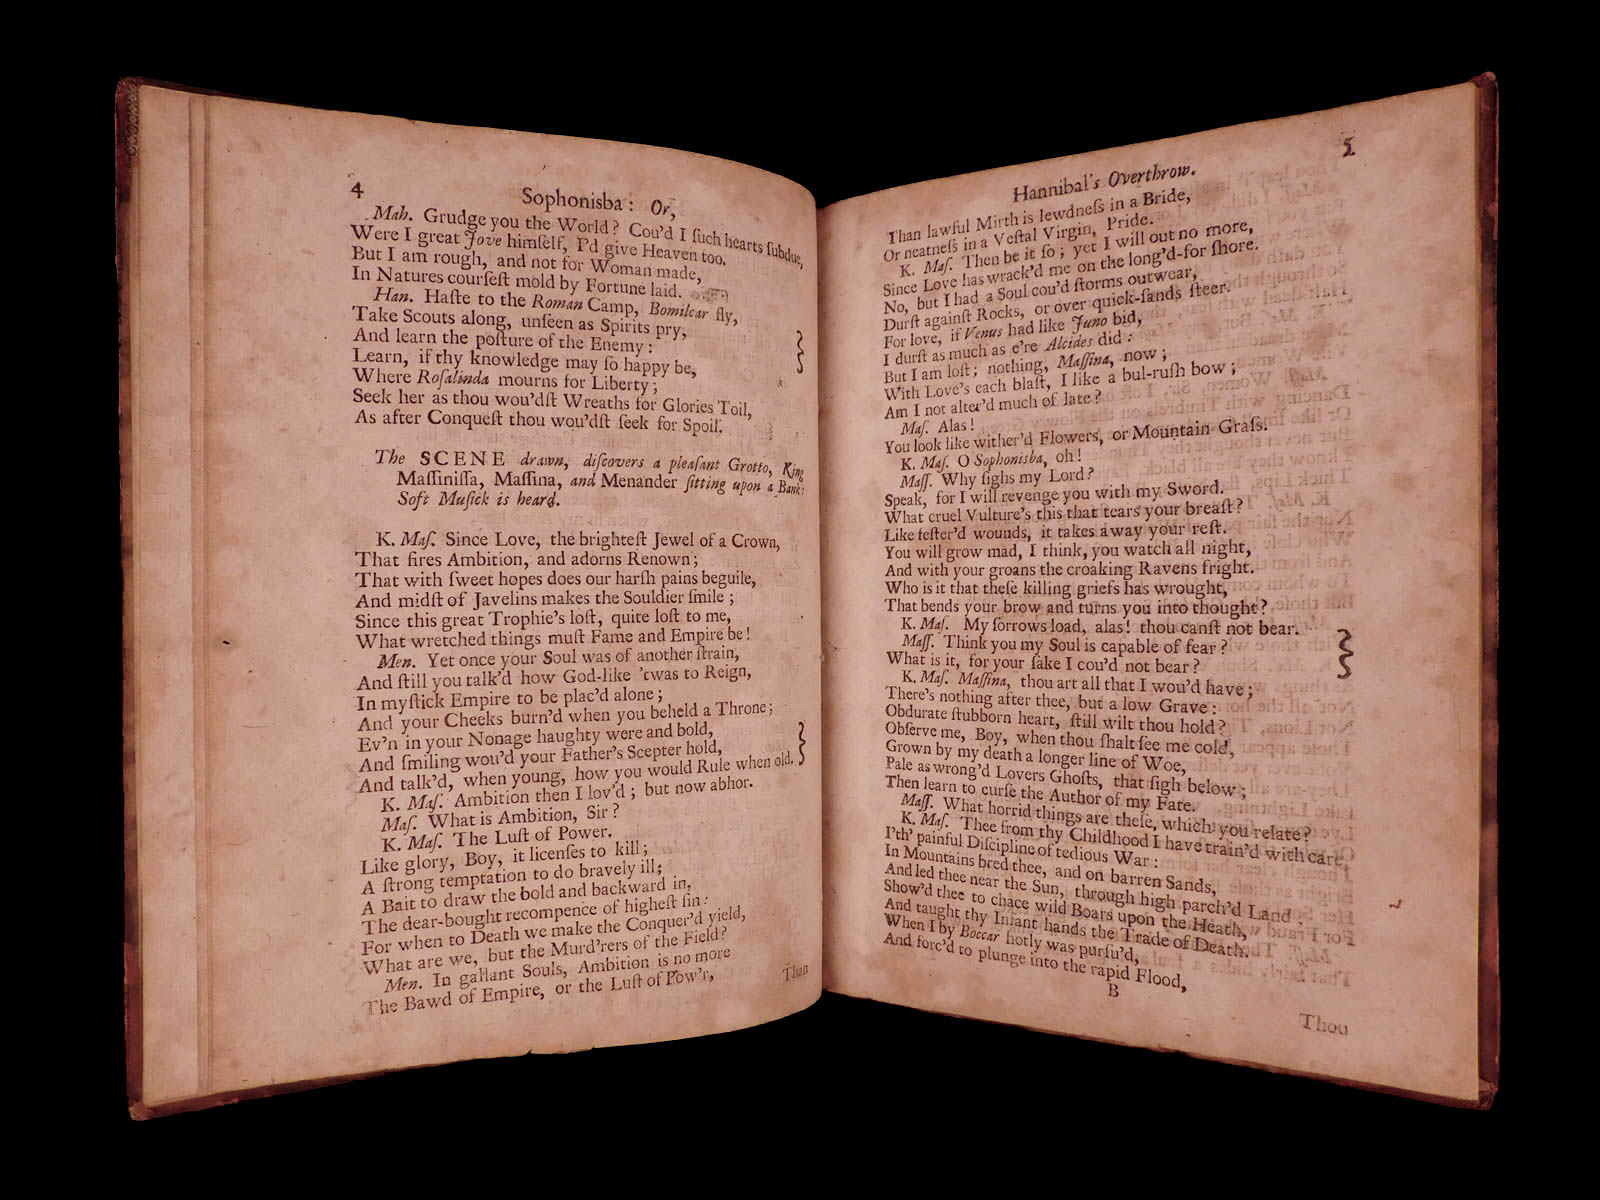 4
Sophonisba: Or,
Mah. Grudge you the World? Cou'd I ſuch hearts ſubdue,
Were I great Jove himſelf, I'd give Heaven too.
But I am rough, and not for Woman made,
In Natures courſeſt mold by Fortune laid.
Han. Haſte to the Roman Camp, Bomilcar fly,
Take Scouts along, unſeen as Spirits pry,
And learn the poſture of the Enemy:
Learn, if thy knowledge may ſo happy be,
Where Roſalinda mourns for Liberty;
Seek her as thou wou'dſt Wreaths for Glories Toil,
As after Conqueſt thou wou'dſt ſeek for Spoil.
The SCENE drawn, diſcovers a pleaſant Grotto, King
Maſſiniſſa, Maſſina, and Menander ſitting upon a Bank:
Soft Muſick is heard.
K. Maſ. Since Love, the brighteſt Jewel of a Crown,
That fires Ambition, and adorns Renown;
That with ſweet hopes does our harſh pains beguile,
And midſt of Javelins makes the Souldier ſmile;
Since this great Trophie's loſt, quite loſt to me,
What wretched things muſt Fame and Empire be!
Men. Yet once your Soul was of another ſtrain,
And ſtill you talk'd how God-like 'twas to Reign,
In myſtick Empire to be plac'd alone;
And your Cheeks burn'd when you beheld a Throne;
Ev'n in your Nonage haughty were and bold,
And ſmiling wou'd your Father's Scepter hold,
And talk'd, when young, how you would Rule when old.
K. Maſ. Ambition then I lov'd; but now abhor.
Maſ. What is Ambition, Sir?
K. Maſ. The Luſt of Power.
Like glory, Boy, it licenſes to kill;
A ſtrong temptation to do bravely ill;
A Bait to draw the bold and backward in,
The dear-bought recompence of higheſt ſin:
For when to Death we make the Conquer'd yield,
What are we, but the Murd'rers of the Field?
Men. In gallant Souls, Ambition is no more
The Bawd of Empire, or the Luſt of Pow'r,
Than
5
Hannibal's Overthrow.
Than lawful Mirth is lewdneſs in a Bride,
Or neatneſs in a Veſtal Virgin, Pride.
K. Maſ. Then be it ſo; yet I will out no more,
Since Love has wrack'd me on the long'd-for ſhore.
No, but I had a Soul cou'd ſtorms outwear,
Durſt againſt Rocks, or over quick-ſands ſteer.
For love, if Venus had like Juno bid,
I durſt as much as e're Alcides did:
But I am loſt; nothing, Maſſina, now;
With Love's each blaſt, I like a bul-ruſh bow;
Am I not alter'd much of late?
Maſ. Alas!
You look like wither'd Flowers, or Mountain Graſs.
K. Maſ. O Sophonisba, oh!
Maſſ. Why ſighs my Lord?
Speak, for I will revenge you with my Sword.
What cruel Vulture's this that tears your breaſt?
Like feſter'd wounds, it takes away your reſt.
You will grow mad, I think, you watch all night,
And with your groans the croaking Ravens fright.
Who is it that theſe killing griefs has wrought,
That bends your brow and turns you into thought?
K. Maſ. My ſorrows load, alas! thou canſt not bear.
Maſſ. Think you my Soul is capable of fear?
What is it, for your ſake I cou'd not bear?
K. Maſ. Maſſina, thou art all that I wou'd have;
There's nothing after thee, but a low Grave:
Obdurate ſtubborn heart, ſtill wilt thou hold?
Obſerve me, Boy, when thou ſhalt ſee me cold,
Grown by my death a longer line of Woe,
Pale as wrong'd Lovers Ghoſts, that ſigh below;
Then learn to curſe the Author of my Fate.
Maſſ. What horrid things are theſe, which you relate?
K. Maſ. Thee from thy Childhood I have train'd with care,
I'th' painful Diſcipline of tedious War:
In Mountains bred thee, and on barren Sands,
And led thee near the Sun, through high parch'd Land
Show'd thee to chace wild Boars upon the Heath,
And taught thy Infant hands the Trade of Death.
When I by Boccar hotly was purſu'd,
And forc'd to plunge into the rapid Flood,
B
Thou